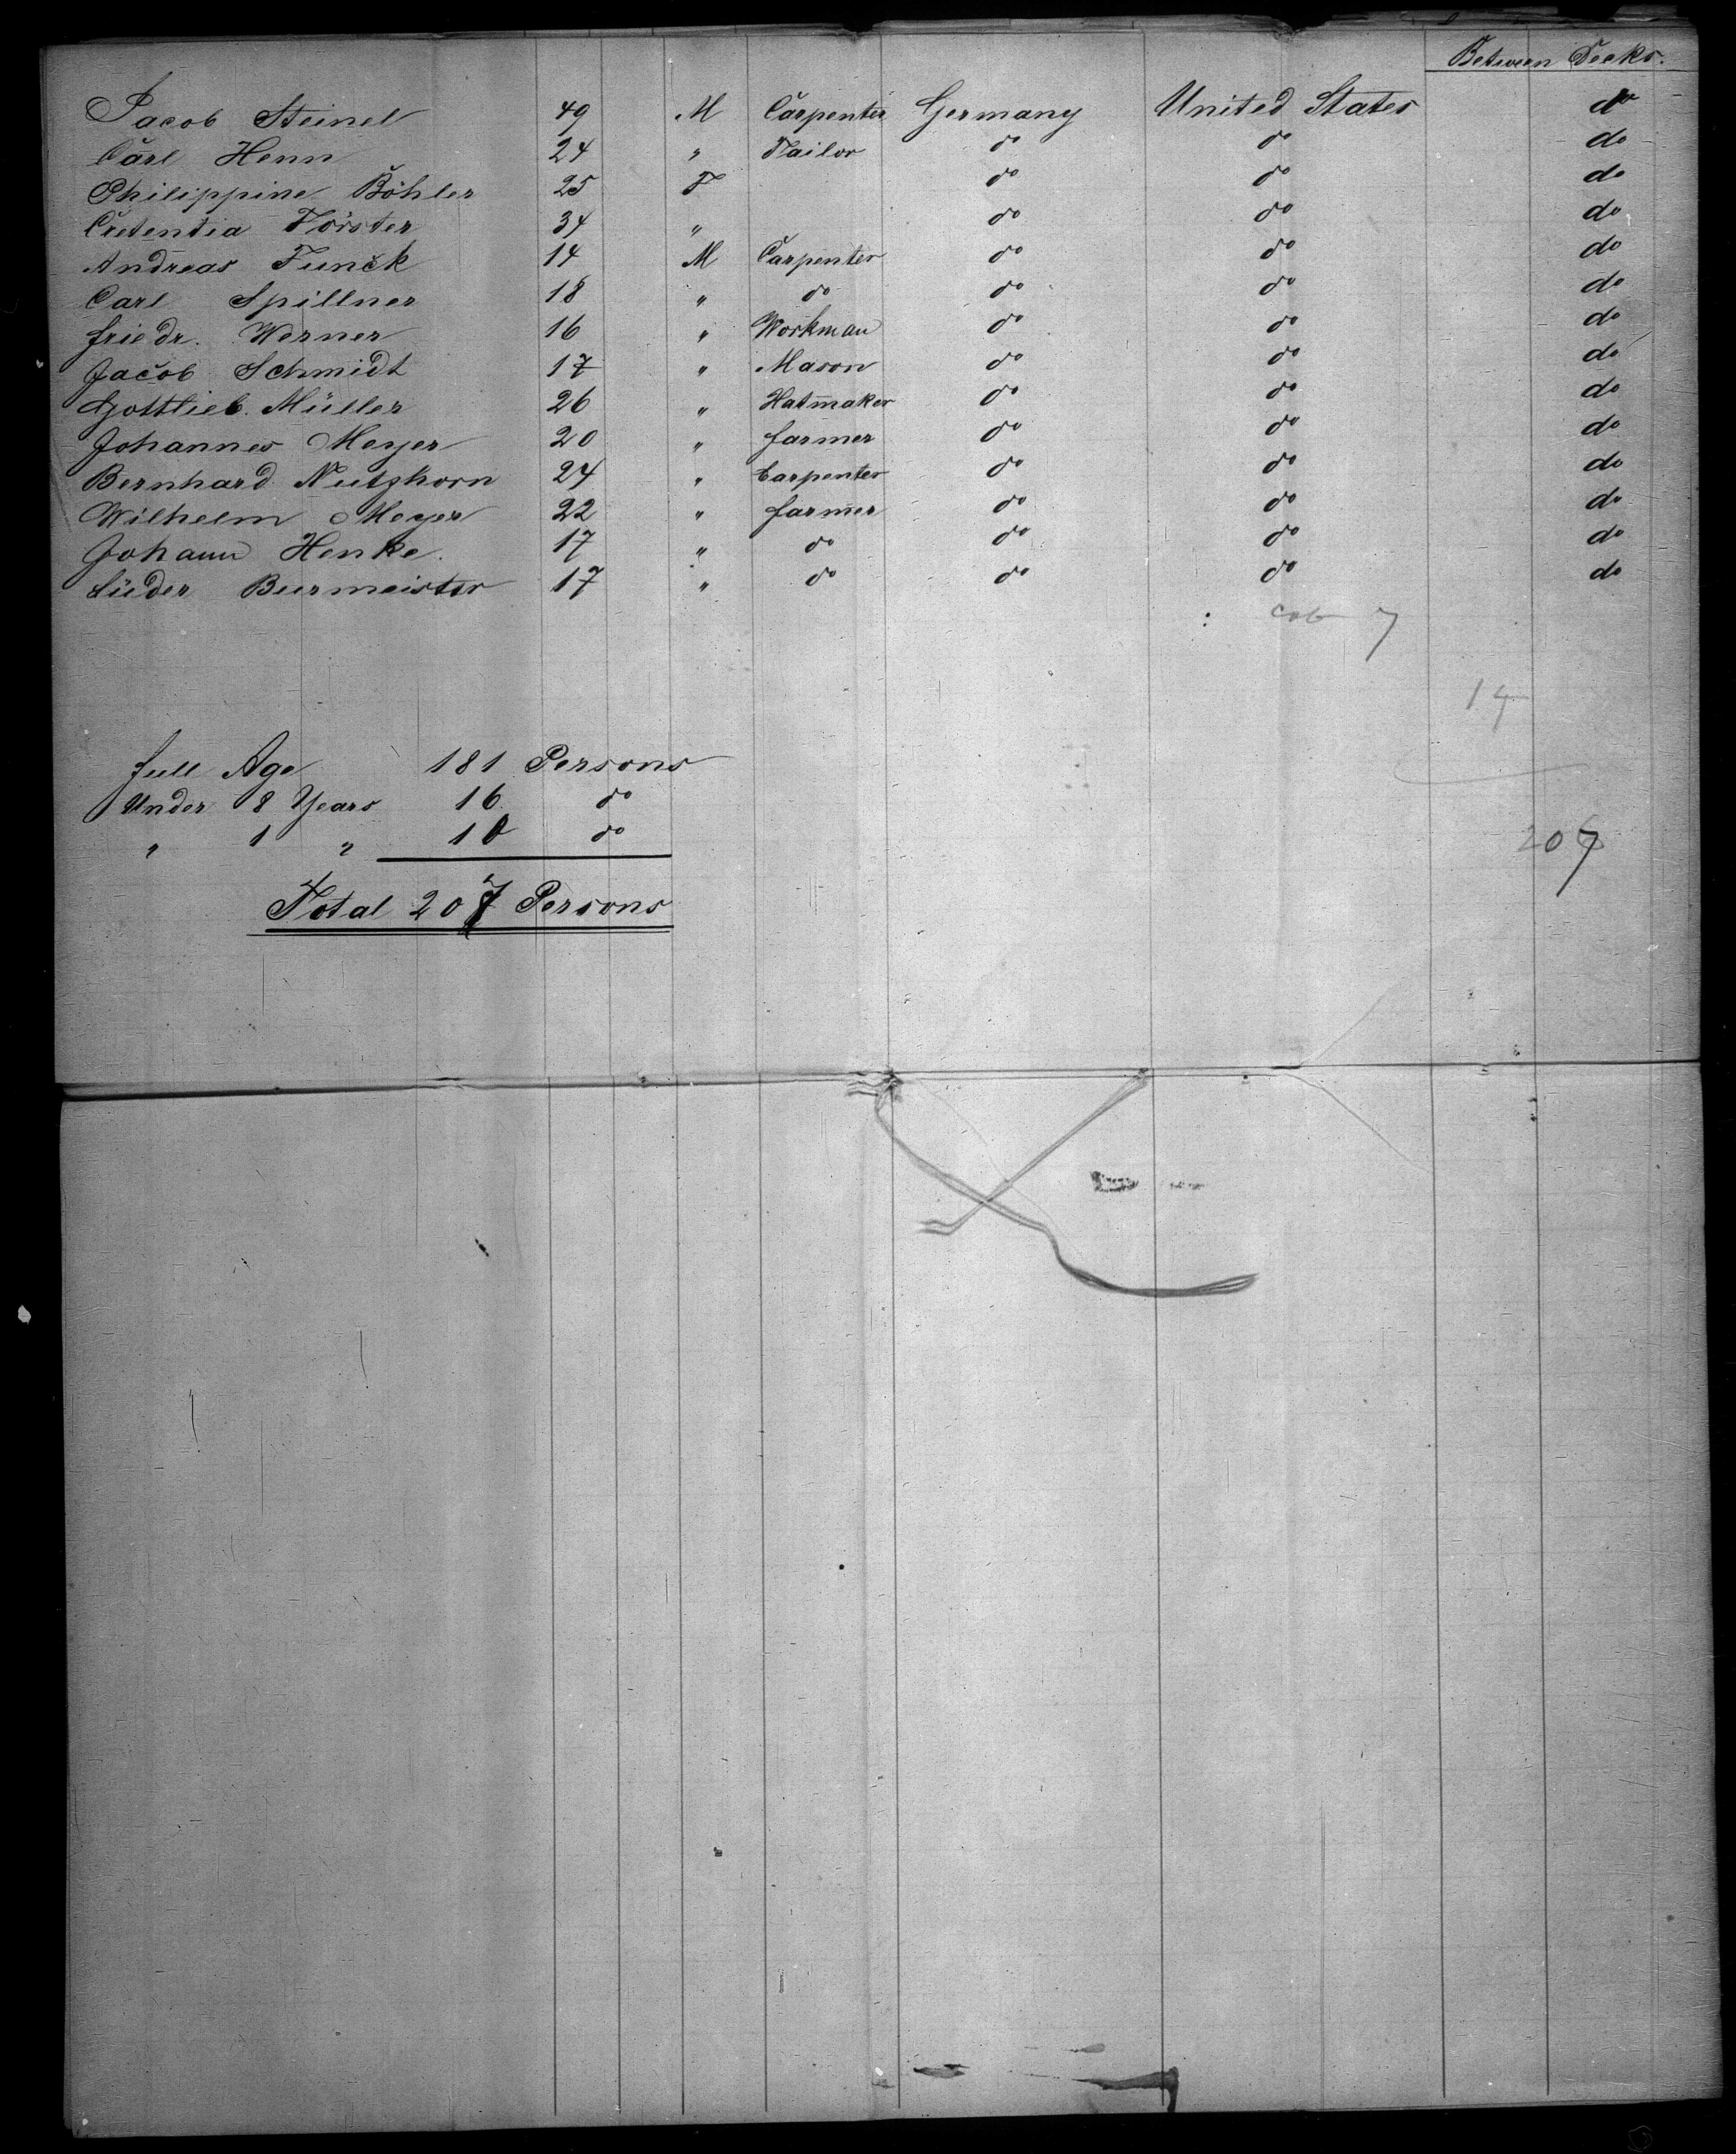 Between Decks.
Jacob Steinel 49 M Carpenter Germany United States do
Carl Henn 24 " Tailor do do do
Philippine Böhler 25 F do do do
Cretentia Förster 34 " do do do
Andreas Funck 14 M Carpenter do do do
Carl Spillner 18 " do do do do
Friedr. Werner 16 " Workman do do do
Jacob Schmidt 17 " Mason do do do
Gottlieb Müller 26 " Hatmaker do do do
Johannes Meyer 20 " farmer do do do
Bernhard Nutzhorn 24 " Carpenter do do do
Wilhelm Meyer 22 " farmer do do do
Johann Henke. 17 " do do do do
Lüder Burmeister 17 " do do do do
cab 7
14
full Age 181 Persons
Under 8 Years 16 do
" 1 " 10 do
207
Total 207 Persons